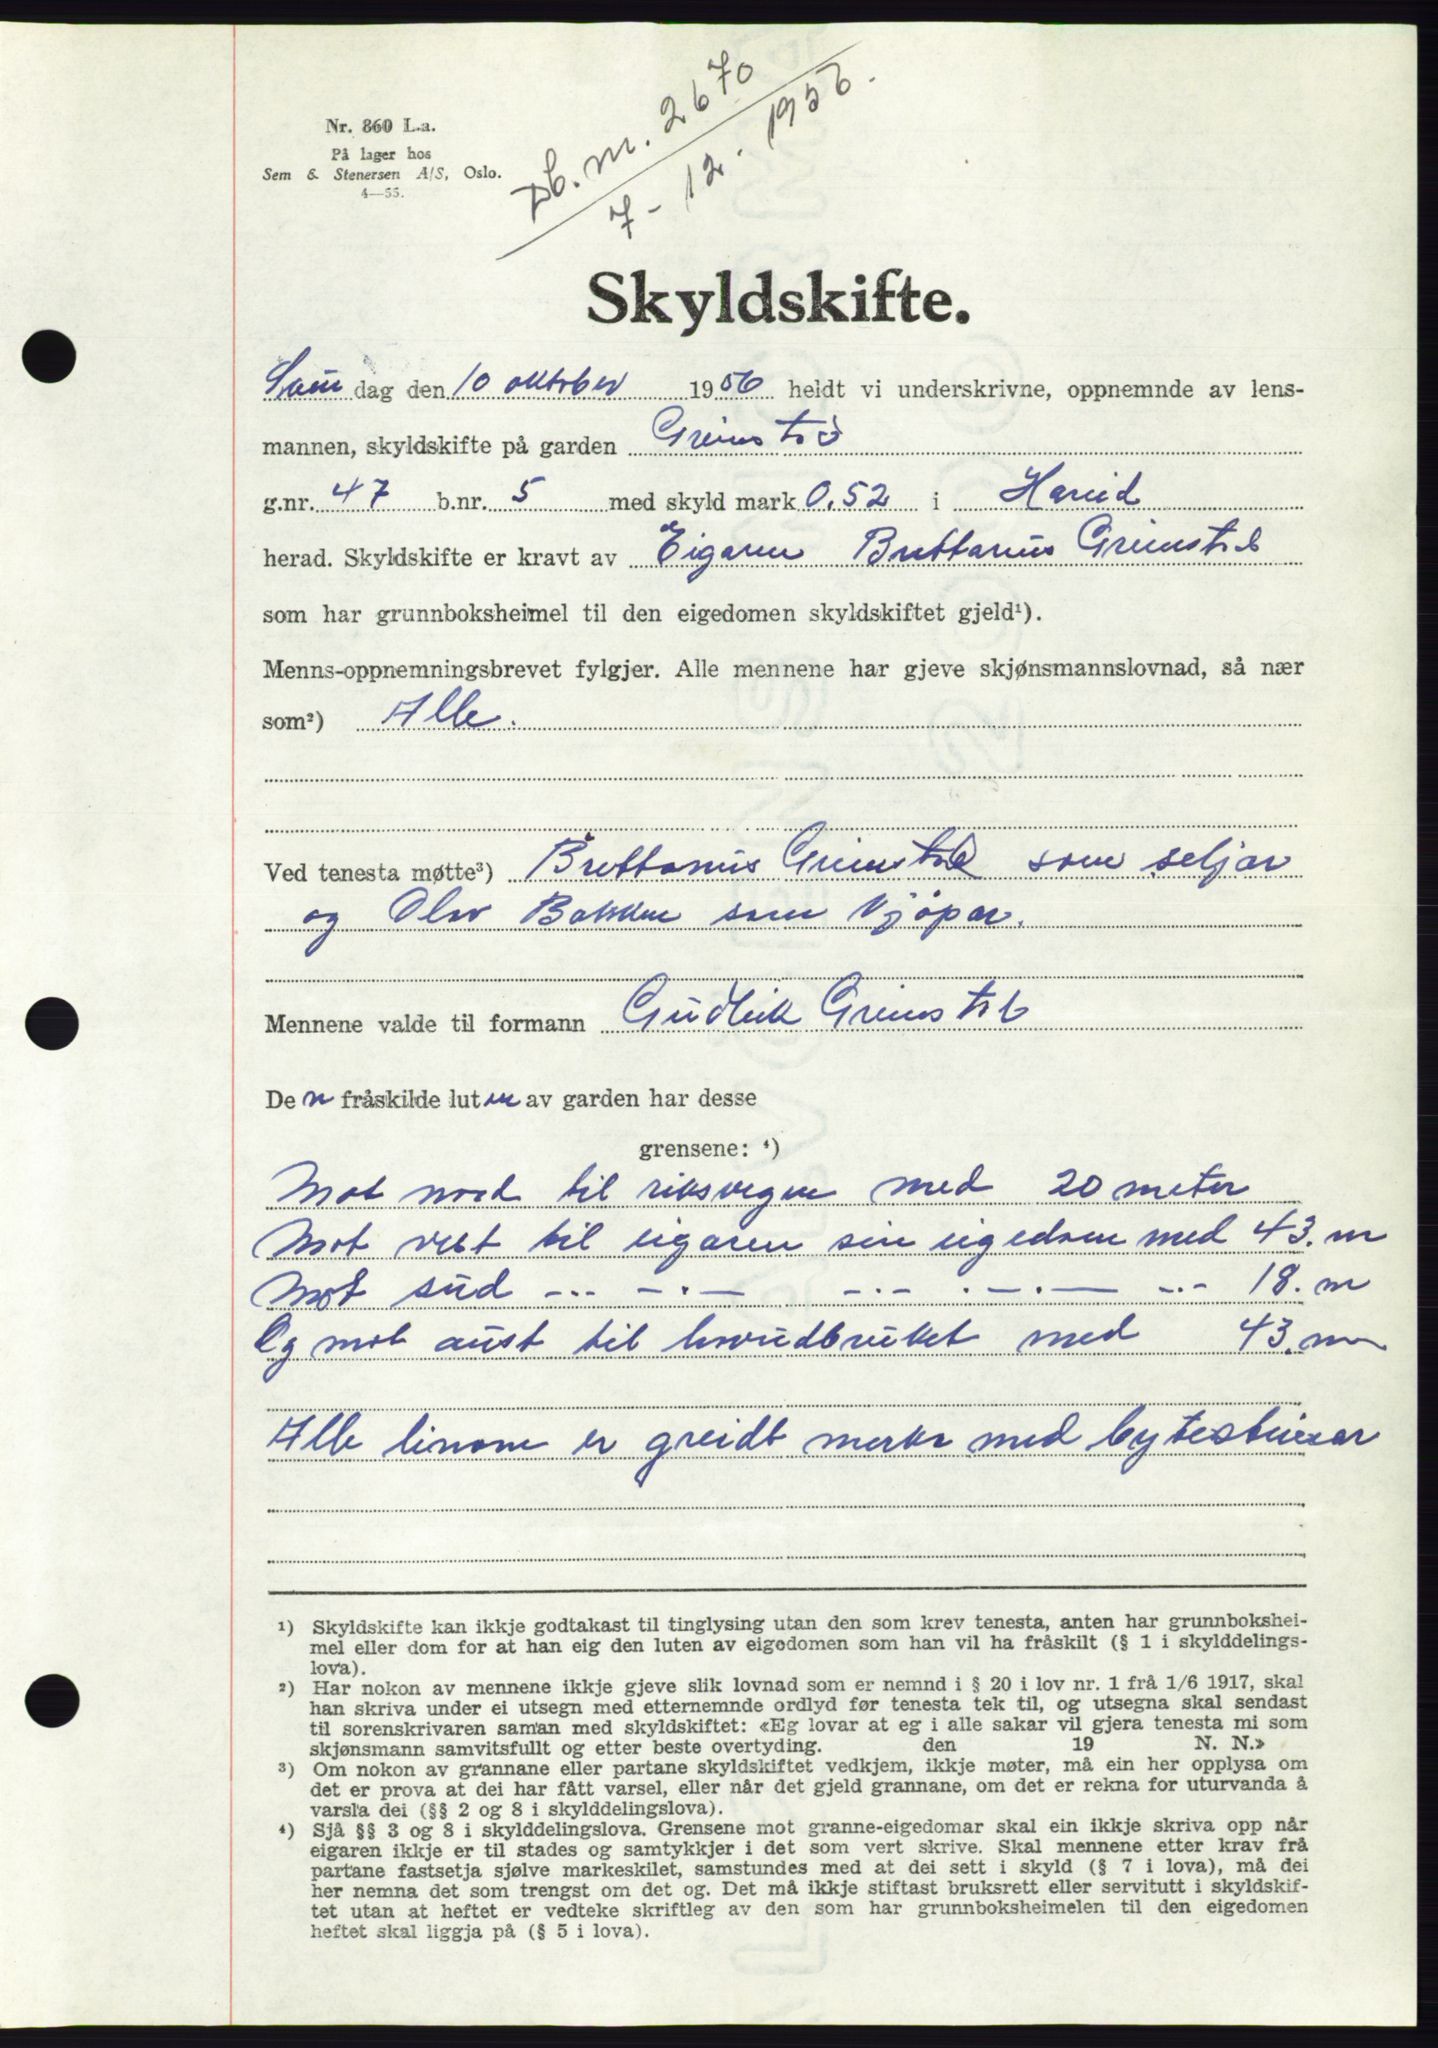 Db. nr. 2670
7-12.1956.
Nr. 860 L.a.
På lager hos
Sem & Stenersen A/S, Oslo.
4—55.
Skyldskifte.
dag den 10 oktober 1956 heldt vi underskrivne, oppnemnde av lens-
mannen, skyldskifte på garden Grimstad
g.nr. 47 b.nr. 5 med skyld mark 0,52 i Hareid
herad. Skyldskifte er kravt av Eigaren Brettanus Grimstad
som har grunnboksheimel til den eigedomen skyldskiftet gjeld¹).
Menns-oppnemningsbrevet fylgjer. Alle mennene har gjeve skjønsmannslovnad, så nær
som²) Alle.
Ved tenesta møtte³) Brettanus Grimstad som seljar
og Olav Bakken som kjøpar.
Mennene valde til formann Gudleik Grimstad
De n fråskilde luten av garden har desse
grensene: ⁴)
Mot nord til riksvegen med 20 meter
Mot vest til eigaren sin eigedom med 43. m
Mot sud --- -.- -.- .-.- --- 18. m
Og mot aust til hovudbruket med 43. m
Alle linone er greidt merka med bytesteinar
¹) Skyldskifte kan ikkje godtakast til tinglysing utan den som krev tenesta, anten har grunnbokshei-
mel eller dom for at han eig den luten av eigedomen som han vil ha fråskilt (§ 1 i skylddelings-
lova).
²) Har nokon av mennene ikkje gjeve slik lovnad som er nemnd i § 20 i lov nr. 1 frå 1/6 1917, skal
han skriva under ei utsegn med etternemnde ordlyd før tenesta tek til, og utsegna skal sendast
til sorenskrivaren saman med skyldskiftet: «Eg lovar at eg i alle sakar vil gjera tenesta mi som
skjønsmann samvitsfullt og etter beste overtyding. den 19 N. N.»
³) Om nokon av grannane eller partane skyldskiftet vedkjem, ikkje møter, må ein her opplysa om
det er prova at dei har fått varsel, eller når det gjeld grannane, om det er rekna for uturvanda å
varsla dei (§§ 2 og 8 i skylddelingslova).
⁴) Sjå §§ 3 og 8 i skylddelingslova. Grensene mot granne-eigedomar skal ein ikkje skriva opp når
eigaren ikkje er til stades og samtykkjer i det som vert skrive. Skal mennene etter krav frå
partane fastsetja sjølve markeskilet, samstundes med at dei sett i skyld (§ 7 i lova), må dei
her nemna det som trengst om det og. Det må ikkje stiftast bruksrett eller servitutt i skyldskif-
tet utan at heftet er vedteke skriftleg av den som har grunnboksheimelen til den eigedomen
heftet skal liggja på (§ 5 i lova).